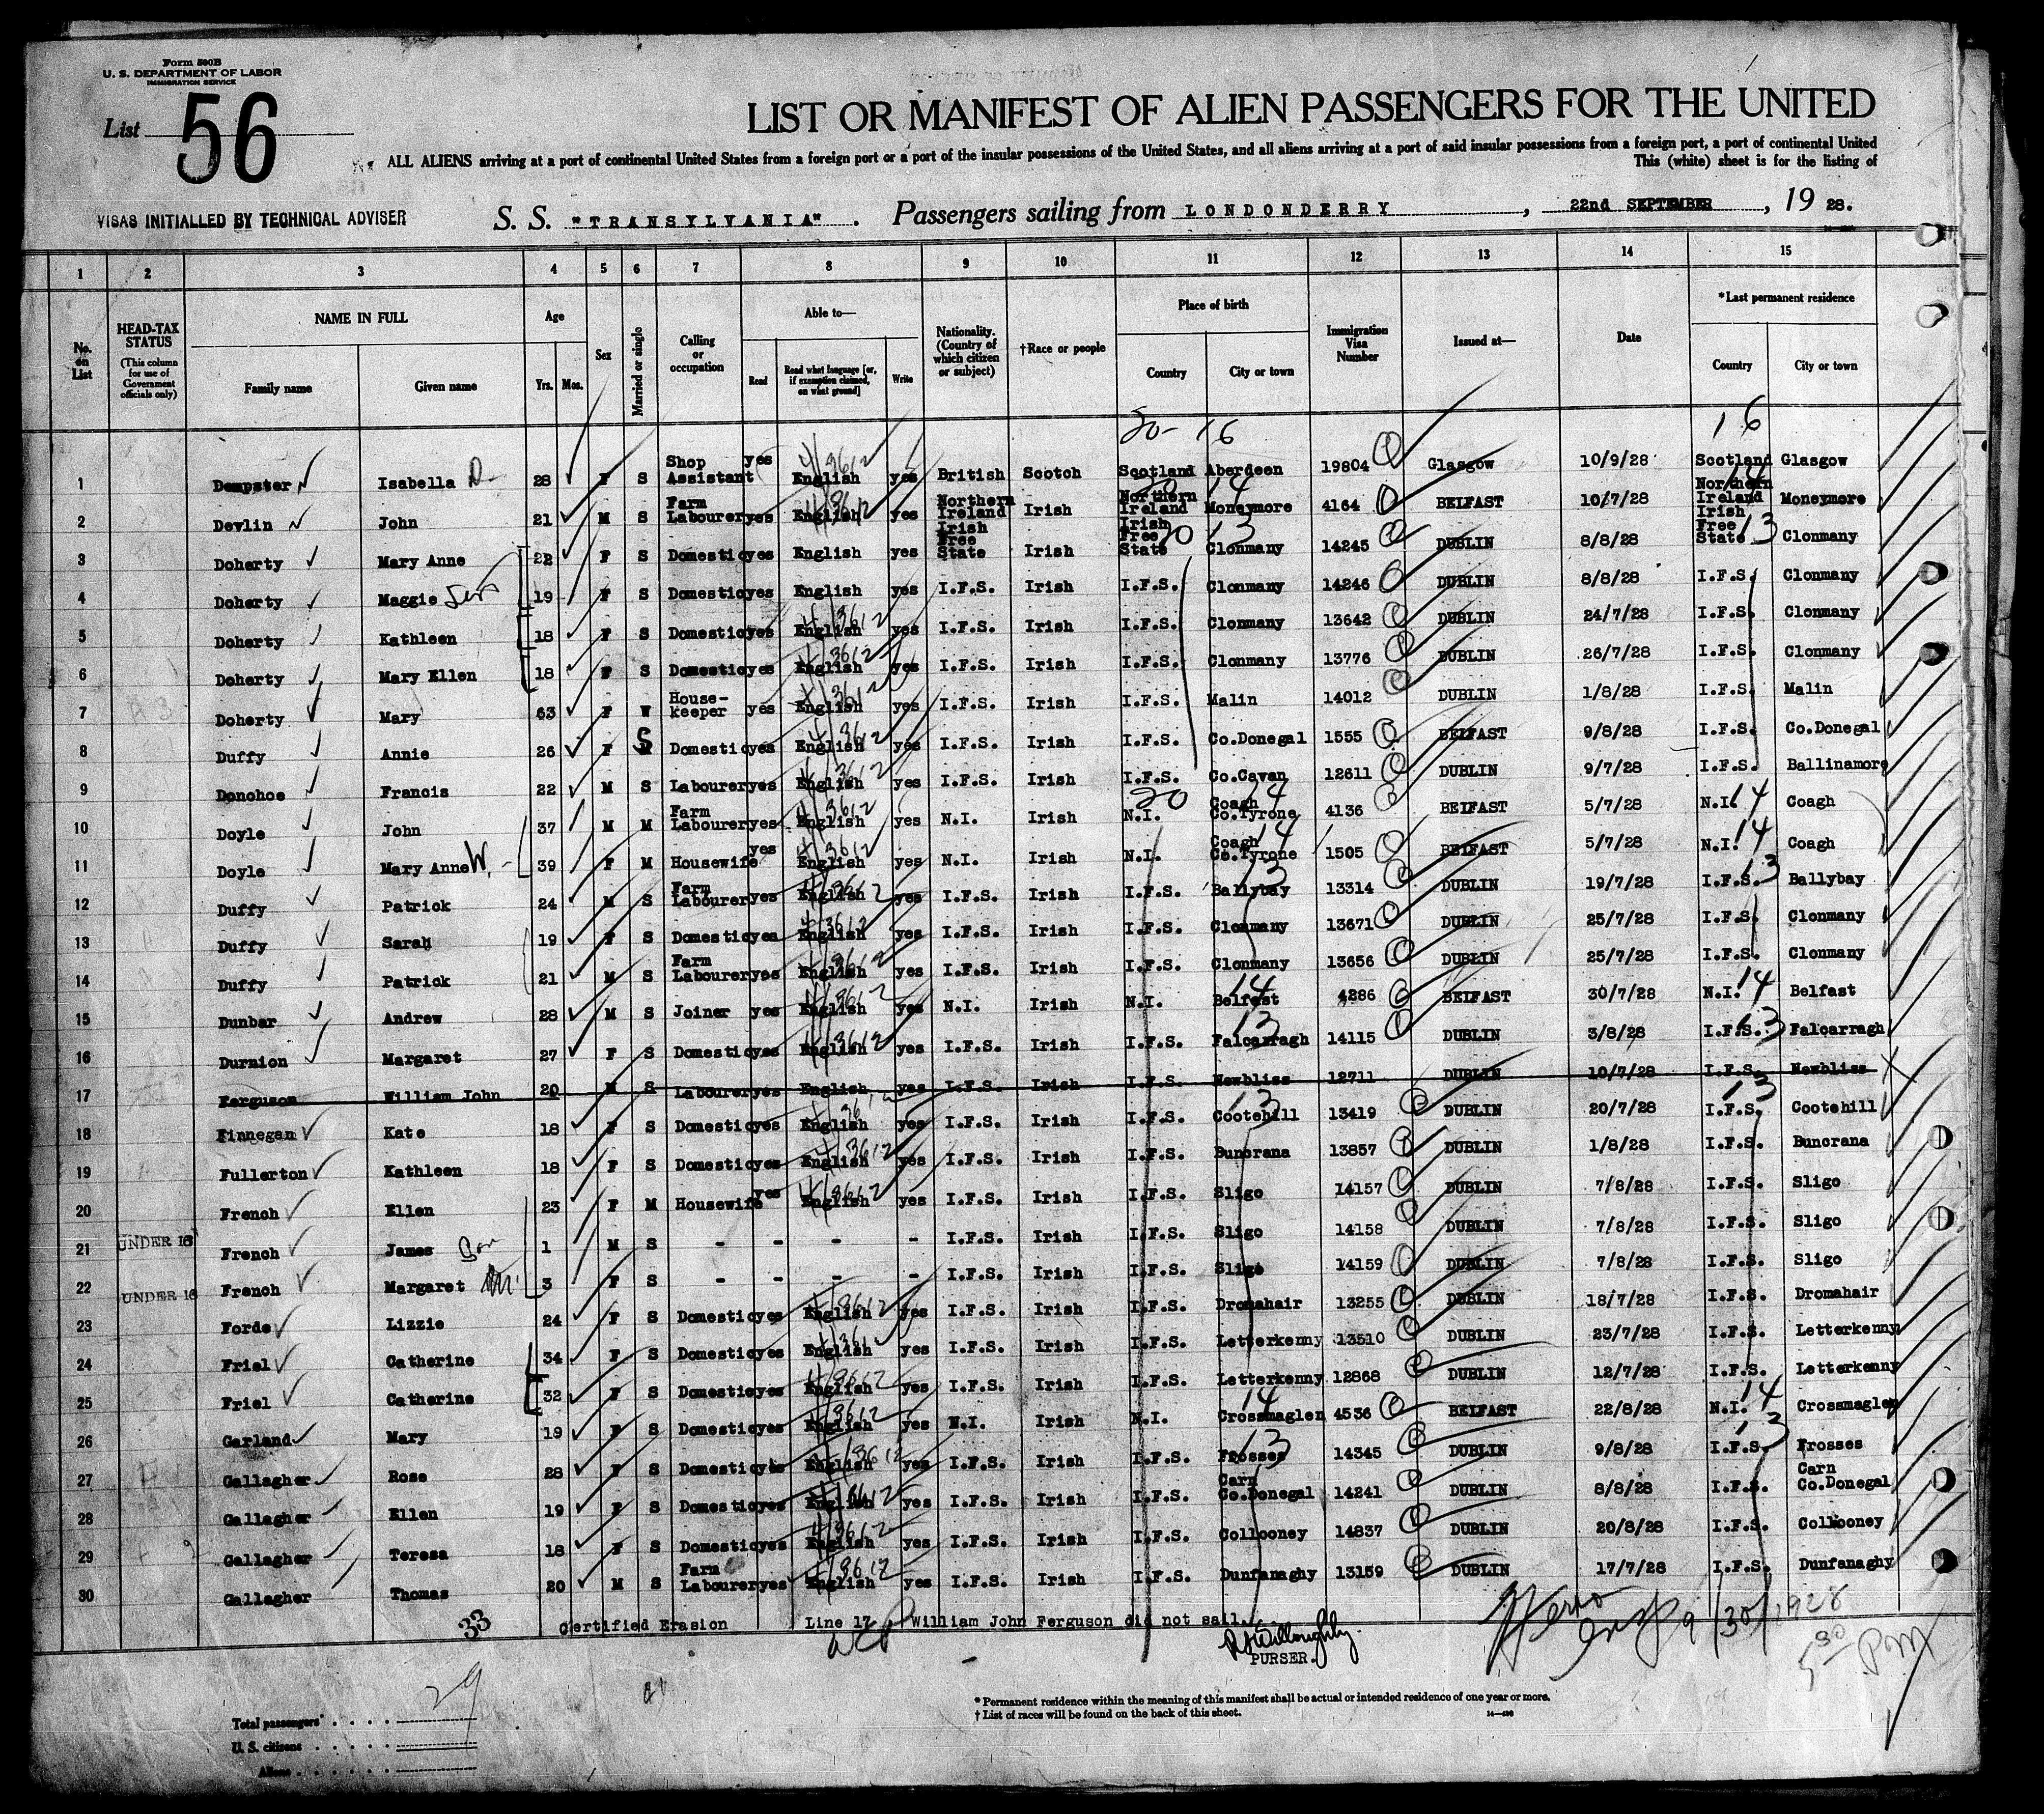 Form 500B
U. S. DEPARTMENT OF LABOR
IMMIGRATION SERVICE
List 56
LIST OR MANIFEST OF ALIEN PASSENGERS FOR THE UNITED
ALL ALIENS arriving at a port of continental United States from a foreign port or a port of the insular possessions of the United States, and all aliens arriving at a port of said insular possessions from a foreign port, a port of continental United
This (white) sheet is for the listing of
VISAS INITIALLED BY TECHNICAL ADVISER S. S. "TRANSYLVANIA". Passengers sailing from LONDONDERRY, 22nd SEPTEMBER, 19 28.
1 2 3 4 5 6 7 8 9 10 11 12 13 14 15
No. on List HEAD-TAX STATUS (This column for use of Government officials only) NAME IN FULL Family name Given name Age Yrs. Mos. Sex Married or single Calling or occupation Able to— Read Read what language [or, if exemption claimed, on what ground] Write Nationality. (Country of which citizen or subject) †Race or people Place of birth Country City or town Immigration Visa Number Issued at— Date *Last permanent residence Country City or town
20- 16 16
1 Dempster Isabella D 28 F S Shop Assistant yes English yes British Scotch Scotland Aberdeen 19804 Glasgow 10/9/28 Scotland Glasgow
2 Devlin John 21 M S Farm Labourer yes English yes Northern Ireland Irish Northern Ireland Moneymore 4164 BELFAST 10/7/28 Northern Ireland Moneymore
3 Doherty Mary Anne 22 F S Domestic yes English yes Irish Free State Irish Irish Free State Clonmany 14245 DUBLIN 8/8/28 Irish Free State Clonmany
4 Doherty Maggie 19 F S Domestic yes English yes I.F.S. Irish I.F.S. Clonmany 14246 DUBLIN 8/8/28 I.F.S. Clonmany
5 Doherty Kathleen 18 F S Domestic yes English yes I.F.S. Irish I.F.S. Clonmany 13642 DUBLIN 24/7/28 I.F.S. Clonmany
6 Doherty Mary Ellen 18 F S Domestic yes English yes I.F.S. Irish I.F.S. Clonmany 13776 DUBLIN 26/7/28 I.F.S. Clonmany
7 Doherty Mary 63 F W House-keeper yes English yes I.F.S. Irish I.F.S. Malin 14012 DUBLIN 1/8/28 I.F.S. Malin
8 Duffy Annie 26 F S Domestic yes English yes I.F.S. Irish I.F.S. Co.Donegal 1555 BELFAST 9/8/28 I.F.S. Co.Donegal
9 Donohoe Francis 22 M S Labourer yes English yes I.F.S. Irish I.F.S. Co.Cavan 12611 DUBLIN 9/7/28 I.F.S. Ballinamore
10 Doyle John 37 M M Farm Labourer yes English yes N.I. Irish N.I. Coagh Co.Tyrone 4136 BELFAST 5/7/28 N.I. Coagh
11 Doyle Mary Anne W. 39 F M Housewife yes English yes N.I. Irish N.I. Coagh Co.Tyrone 1505 BELFAST 5/7/28 N.I. Coagh
12 Duffy Patrick 24 M S Farm Labourer yes English yes I.F.S. Irish I.F.S. Ballybay 13314 DUBLIN 19/7/28 I.F.S. Ballybay
13 Duffy Sarah 19 F S Domestic yes English yes I.F.S. Irish I.F.S. Clonmany 13671 DUBLIN 25/7/28 I.F.S. Clonmany
14 Duffy Patrick 21 M S Farm Labourer yes English yes I.F.S. Irish I.F.S. Clonmany 13656 DUBLIN 25/7/28 I.F.S. Clonmany
15 Dunbar Andrew 28 M S Joiner yes English yes N.I. Irish N.I. Belfast 4286 BELFAST 30/7/28 N.I. Belfast
16 Durnion Margaret 27 F S Domestic yes English yes I.F.S. Irish I.F.S. Falcarragh 14115 DUBLIN 3/8/28 I.F.S. Falcarragh
17 Ferguson William John 20 M S Labourer yes English yes I.F.S. Irish I.F.S. Newbliss 12711 DUBLIN 10/7/28 I.F.S. Newbliss
18 Finnegan Kate 18 F S Domestic yes English yes I.F.S. Irish I.F.S. Cootehill 13419 DUBLIN 20/7/28 I.F.S. Cootehill
19 Fullerton Kathleen 18 F S Domestic yes English yes I.F.S. Irish I.F.S. Buncrana 13857 DUBLIN 1/8/28 I.F.S. Buncrana
20 French Ellen 23 F M Housewife yes English yes I.F.S. Irish I.F.S. Sligo 14157 DUBLIN 7/8/28 I.F.S. Sligo
21 UNDER 16 French James Son 1 M S - - - - I.F.S. Irish I.F.S. Sligo 14158 DUBLIN 7/8/28 I.F.S. Sligo
22 UNDER 16 French Margaret 3 F S - - - - I.F.S. Irish I.F.S. Sligo 14159 DUBLIN 7/8/28 I.F.S. Sligo
23 Forde Lizzie 24 F S Domestic yes English yes I.F.S. Irish I.F.S. Dromahair 13255 DUBLIN 18/7/28 I.F.S. Dromahair
24 Friel Catherine 34 F S Domestic yes English yes I.F.S. Irish I.F.S. Letterkenny 13510 DUBLIN 23/7/28 I.F.S. Letterkenny
25 Friel Catherine 32 F S Domestic yes English yes I.F.S. Irish I.F.S. Letterkenny 12868 DUBLIN 12/7/28 I.F.S. Letterkenny
26 Garland Mary 19 F S Domestic yes English yes N.I. Irish N.I. Crossmaglen 4536 BELFAST 22/8/28 N.I. Crossmaglen
27 Gallagher Rose 28 F S Domestic yes English yes I.F.S. Irish I.F.S. Frosses 14345 DUBLIN 9/8/28 I.F.S. Frosses
28 Gallagher Ellen 19 F S Domestic yes English yes I.F.S. Irish I.F.S. Carn Co.Donegal 14241 DUBLIN 8/8/28 I.F.S. Carn Co.Donegal
29 Gallagher Teresa 18 F S Domestic yes English yes I.F.S. Irish I.F.S. Collooney 14837 DUBLIN 20/8/28 I.F.S. Collooney
30 Gallagher Thomas 20 M S Farm Labourer yes English yes I.F.S. Irish I.F.S. Dunfanaghy 13159 DUBLIN 17/7/28 I.F.S. Dunfanaghy
33 Certified Erasion Line 17 William John Ferguson did not sail.
Willoughby. 9/30/1928
PURSER. 5 30 PM
29
* Permanent residence within the meaning of this manifest shall be actual or intended residence of one year or more.
† List of races will be found on the back of this sheet.
Total passengers
U. S. citizens
Aliens